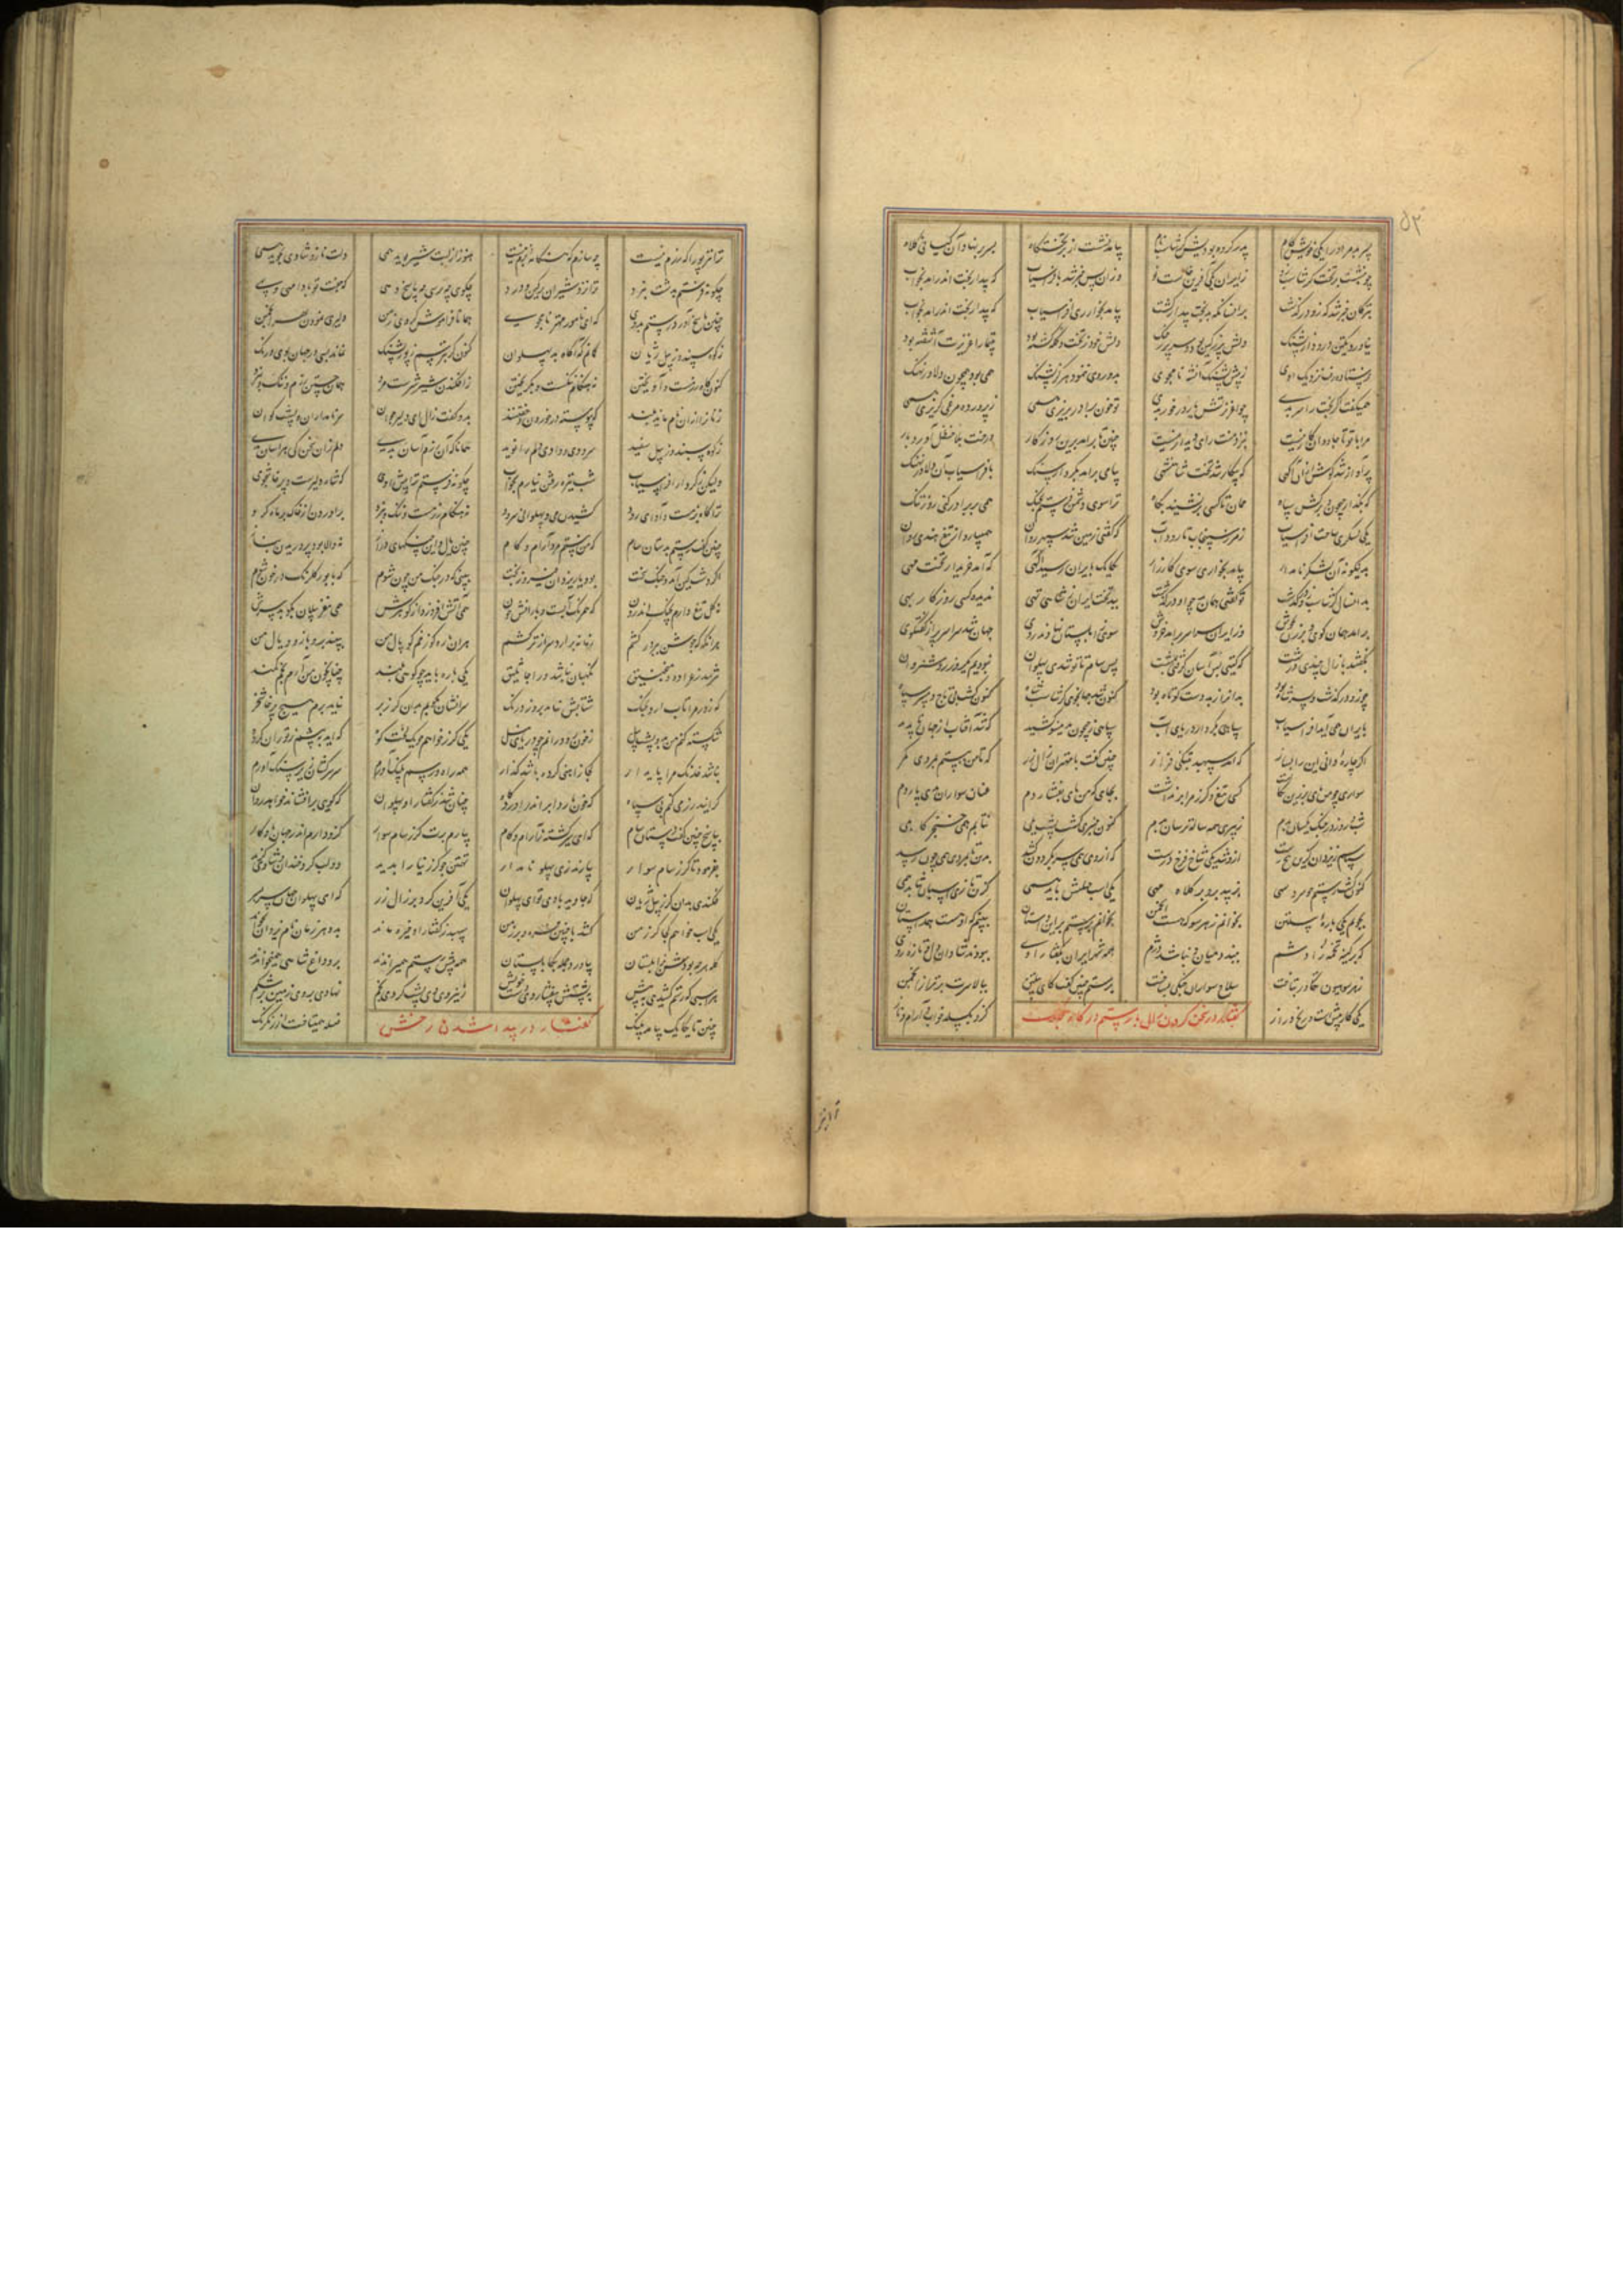 ۵۲
پسر بد مر او را یکی خویش کام پدر کرده بودیش گرشاسب نام بیامد نشست از بر تختگاه بسر بر نهاد آن کیانی کلاه
چو بنشست بر تخت گرشاسب زایران یکی آفرین خاست نو وزان پس خبر شد بافراسیاب که بیدار بخت اندر آمد بخواب
بترکان خبر شد که زو درگذشت بیامد بخوار ری افراسیاب که بیدار بخت اندر آمد بخواب
نیاورد یکتن درود از پشنگ دلش پر ز کین بود و سر پر ز جنگ دلش خود ز تخت و کله گشته بود بتیمار اغریرث آغشته بود
فرستاده رفتی بنزدیک اوی ز پیش پشنگ آنشه نامجوی بدو روی ننمود هرگز پشنگ همی بود همچون دلاور نهنگ
همیگفت اگر تخت را سر بدی چو اغریرتش یار در خور بدی تو خون برادر بریزی همی ز پرورده مرغی گریزی همی
مرا با تو تا جاودان کار نیست بنزد منت رای دیدار نیست چنین تا برآمد برین روزگار درخت بلا حنظل آورد بار
پر آواز شد گوش ازین آگهی که بیکار شد تخت شاهنشهی پیامی برآمد بکردار سنگ بافراسیاب آن دلاور نهنگ
که بگذار جیحون و برکش سپاه ممان تا کسی برنشیند بگاه ترا سوی دشمن فرستم بجنگ همی بر برادر کنی روز تنگ
یکی لشکری ساخت افراسیاب ز مرز سپنجاب تا رود آب که گفتی زمین شد سپهر روان همیبارد از تیغ هندی روان
بدینگونه آن لشکر نامدار بیامد بخواری سوی کارزار یکایک بایران رسید آگهی که آمد خریدار تخت مهی
بد انسال گرشاسب زو درگذشت تو گفتی جهان ببد تخت ایران ز شاهی تهی ندیده کسی روزگار بهی
برآمد جهان کوی و برزن بجوش وز ایران سراسر برآمد خروش سوی زابلستان نهادند روی جهان شد سراسر پر از گفتگوی
بگفتند با زال چندی درشت که گیتی بس آسان گرفتی بمشت پس سام تا تو شدی پهلوان نبودیم یکروز روشن روان
چو زو درگذشت و پسر شاه بود بدان را ز بد دست کوتاه بود کنون شد جهانجوی گرشاسب شاه کنون گشت بی تاج و بی سر سپاه
بایران همی آید افراسیاب سپاهی بکردار دریای آب سپاهی ز جیحون بدینسو کشید که شد آفتاب از جهان ناپدید
اگر چاره دانی این را بساز که آمد سپهبد بتنگی فراز چنین گفت با مهتران زال زر که تا من ببستم بمردی کمر
سواری چو من پای بر زین نگاشت کسی تیغ و گرز مرا برنداشت بجایی که من پای بفشاردم عنان سواران
شب و روز در جنگ یکسان بدم ز پیری همه ساله ترسان بدم کنون چنبری گشت پشت یلی نتابم همی خنجر کابلی
سپاسم ز یزدان کزین بیخ رست ازو شد یکی شاخ فرخ درست که از روی همی سر بگردون کشد بدو تا بمردی همی چون رسد
کنون گشت رستم چو سرو سهی بزیبد برو بر کلاه مهی یکی اسب جنگیش باید همی کزین تازی اسبان نشاید همی
بجویم یکی باره پیلتن بخواهم ز هر سو که هست انجمن بخوانم برستم بر این داستان ببینم که او هست همداستان
که بر کینه تخمه زادشم ببندد میان و نباشد دژم همه شهر ایران بگفتار اوی ببودند شادان دل و تازه روی
ز هر سو هیونی تکاور بتاخت سلاح سواران جنگی بساخت برستم چنین گفت کای پیلتن ببالا سرت برتر از انجمن
یکی کار پیشست و رنجی دراز گفتار در سخن کردن زال با رستم در کار جنگ کزو بگسلد خواب و آرام و ناز
ترا نیز پورا که رزم نیست چه سازم که هنگامه بزم نیست هنوز از لبت شیر بوید همی دلت ناز و شادی بجوید همی
چگونه فرستم بدشت نبرد ترا نزد شیران پر کین و درد چگویی چه سازی چه پاسخ دهی که جفت تو بادا مهی و بهی
چنین پاسخ آورد رستم بدوی که ای نامور مهتر نامجوی همانا فراموش کردی ز من دلیری نمودن بهر انجمن
ز کوه سپند و ز پیل ژیان گمانم که آگاه بد پهلوان کنون گر بترسم ز پور پشنگ نماند بسی در جهان بوی و رنگ
کنون گاه رزمست و آویختن نه هنگام ننگست و بگریختن ز افکندن شیر شرزست مرد همان جستن رزم و ننگ و نبرد
زنان را از آن نام ناید بلند که پیوسته در خوردن و خفتنند بدو گفت زال ای دلیر جوان سر نامداران و پشت گوان
ز کوه سپند و ز پیل سفید سرودی و دادی دلم را نوید همانا که آن رزم آسان بدی دلم زان سخن کی هراسان بدی
ولیکن ز کردار افراسیاب شب تیره رفتن نیارم بخواب چگونه فرستم ترا پیش اوی که شاه دلیرست و پرخاشجوی
ترا گاه بزمست و آوای رود کشیدن می و پهلوانی سرود نه هنگام رزمست و ننگ و نبرد برآوردن از خاک بر ماه گرد
چنین گفت رستم بدستان سام که من نیستم مرد آرام و کام چنین یال و این چنگهای دراز نه والا بود پروریدن بناز
اگر دشت کین آید و جنگ سخت بود یار یزدان و پیروز بخت ببینی که در جنگ من چون شوم که با پور گلرنگ در خون شوم
یکی تیغ دارم بچنگ اندرون که همرنگ آبست و بارانش خون همی آتش افروزد از گوهرش همی مغز پیلان بکوبد سرش
هر آنگه که جوشن ببر در کشم زمانه برآرد سر از ترکشم هر آن باره کو زخم کوپال من ببیند برو بازو و یال من
نترسد ز عراده و منجنیق نگهبان نباشد ورا جاثلیق یکی باره باید چو کوه بلند چنان چون من آرم بخم کمند
که زور مرا تاب آرد بجنگ شتابش نیاید بروز درنگ نیاید برم هیچ پرخاشخر
شکسته کنم من بدو پشت پیل ز خون رود رانم چو دریای نیل یکی گرز خواهم چو یک لخت کوه که آید به پیشم ز توران گروه
نباشد خدنگ مرا پایدار کجا ز آهنی کرده باشد گذار سر سرکشان زیر سنگ آورم
کزایند رزمی کنم بی سپاه که خون بارد ابر اندر آوردگاه چنان شد ز گفتار او پهلوان که گویی برافشاند خواهد روان
بپاسخ چنین گفت دستان سام که ای سیر گشته ز آرام و کام بیارم برت گرز سام سوار کزو دارم اندر جهان یادگار
بفرمود تا گرز سام سوار بیارند زی پهلو نامدار تهمتن چو گرز نیا را بدید دو لب کرد خندان و شادی گزید
فکندی بدان گرز پیل ژیان که جاوید بادی تو ای پهلوان یکی آفرین کرد بر زال زر که ای پهلوان جهان سربسر
یکی اسب خواهم کجا گرز من کشد با چنین فره و برز من سپهبد ز گفتار او خیره ماند بدو هر زمان نام یزدان بخواند
گله هر چه بودش بزابلستان بیاورد و جمله بکابلستان همه پیش رستم همیراندند برو داغ شاهی همیخواندند
هر اسبی که رستم کشیدی به پیش به پشتش بیفشاردی دست خویش ز نیروی وی پشت کردی بخم نهادی بروی زمین بر شکم
چنین تا یکایک بیامد بچنگ گفتار در پیدا شدن رخش فسیله همیتافت از رنگ رنگ